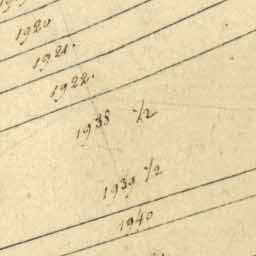 1920
1921.
1922.
1938 1/2
1939 1/2
1940